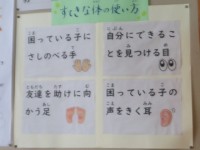 すてきな体の使い方
困っている子に
さしのべる手
自分にできるこ
とを見つける目
友達を助けに向
かう足
困っている子の
声をきく耳